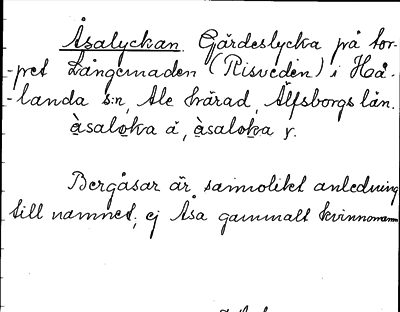 Åsalyckan. Gärdeslycka på tor-
-pet Långemaden (Risveden) i Hå-
-landa s:n, Ale härad, Älfsborgs län.
àsaloka á, àsaloka y.
Bergåsar är sannolikt anledning
till namnet, ej Åsa gammalt kvinnonamn